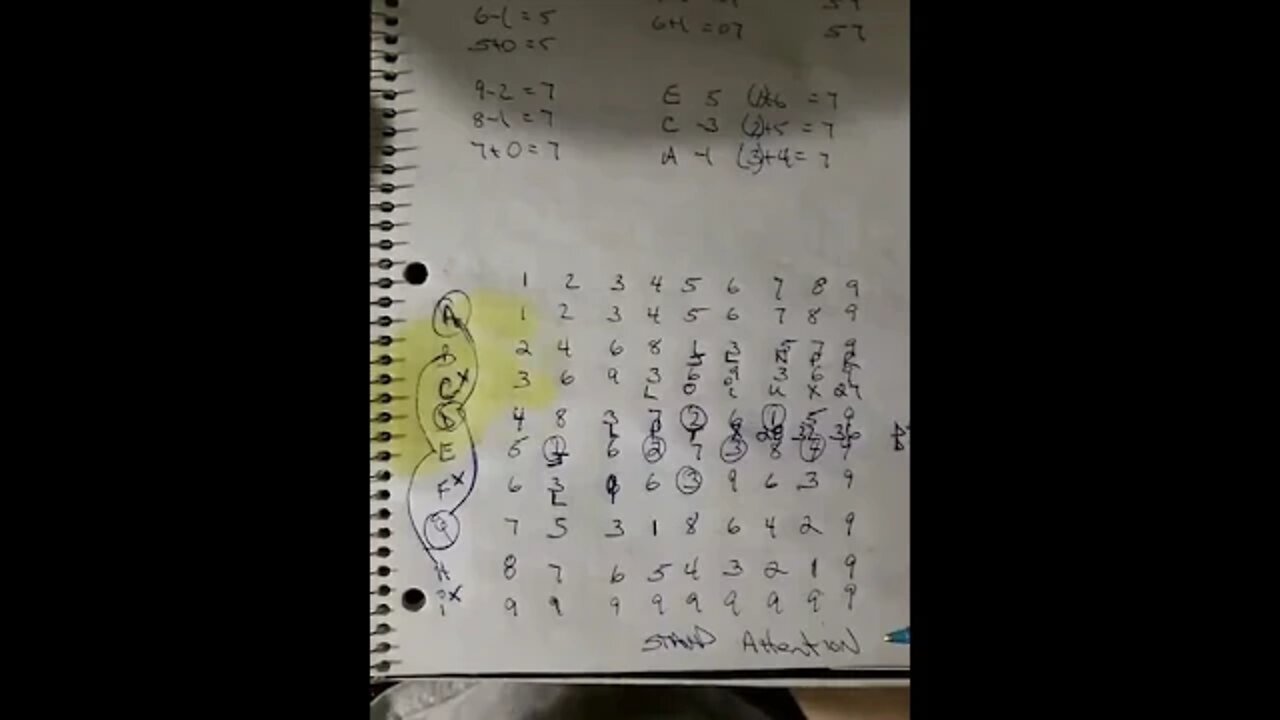 6-1=5 6+1=07 57
5+0=5
9-2=7 E 5 (1)+6 =7
8-1=7 C -3 (2)+5 =7
7+0=7 A -1 (3)+4= 7
1 2 3 4 5 6 7 8 9
A 1 2 3 4 5 6 7 8 9
B 2 4 6 8 1 3 5 7 9
C x 3 6 9 3 6 9 3 6 9
D 4 8 3 7 2 6 1 5 9
E 5 1 6 2 7 3 8 4 9
F x 6 3 9 6 3 9 6 3 9
G 7 5 3 1 8 6 4 2 9
H 8 7 6 5 4 3 2 1 9
I x 9 9 9 9 9 9 9 9 9
STAND Attention